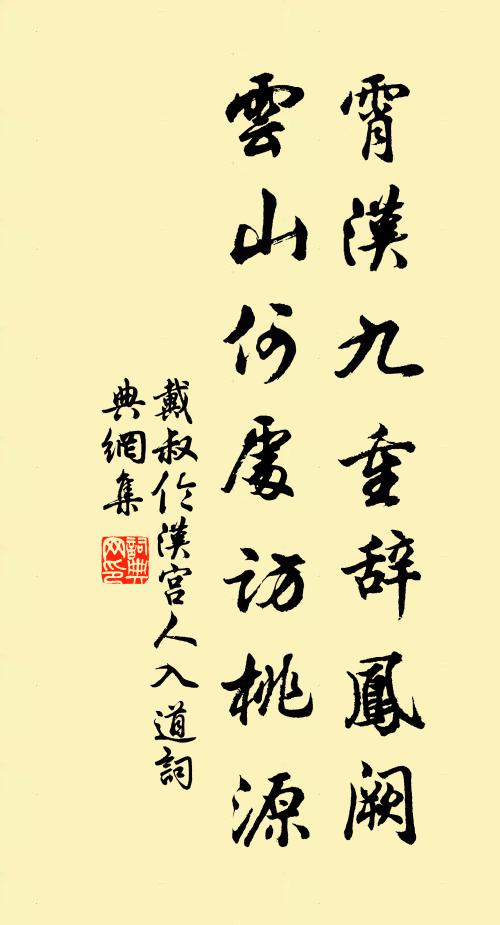 霄漢九重辞鳳闕
雲山何處訪桃源
戴叔伦漢宫人入道詞
典網集
詞典网印